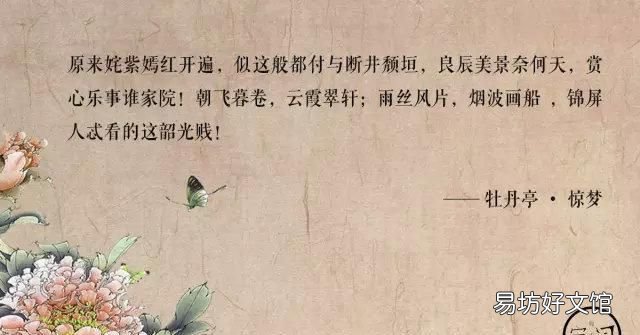 原来姹紫嫣红开遍，似这般都付与断井颓垣，良辰美景奈何天，赏
心乐事谁家院！朝飞暮卷，云霞翠轩；雨丝风片，烟波画船 ，锦屏
人忒看的这韶光贱！
—— 牡丹亭 · 惊梦
易坊好文馆